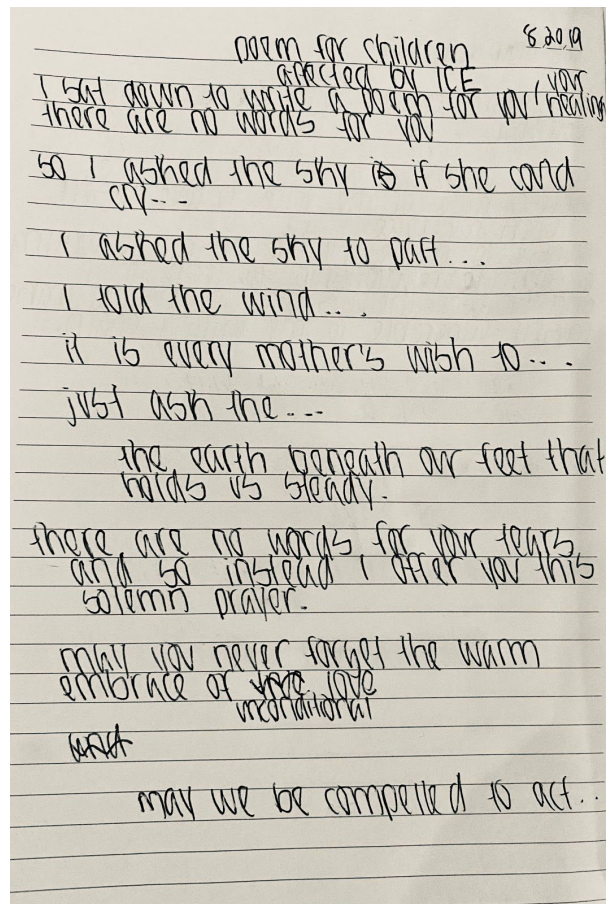 8.20.19
poem for children
affected by ICE
I sat down to write a poem for you / your healing
there are no words for you
so I asked the sky if she could
cry...
I asked the sky to part...
I told the wind...
it is every mother's wish to...
just ask the...
the earth beneath our feet that
holds us steady.
there are no words for your tears
and so instead I offer you this
solemn prayer.
may you never forget the warm
embrace of love
unconditional
may we be compelled to act..